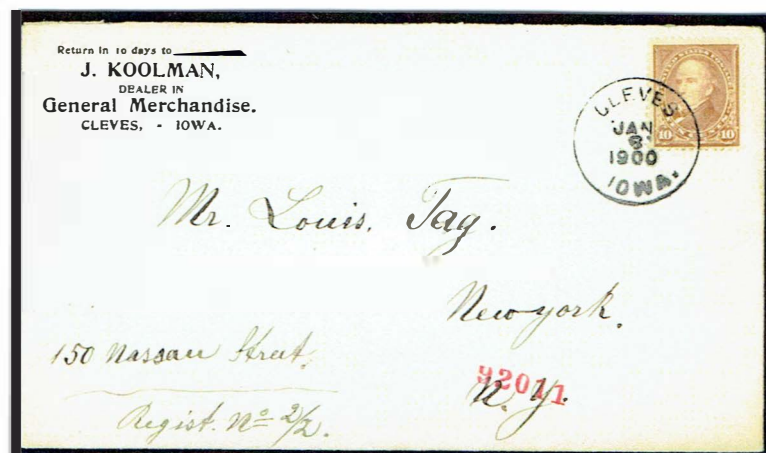 Return in 10 days to
J. KOOLMAN,
DEALER IN
General Merchandise.
CLEVES, - IOWA.
CLEVES
JAN
6
1900
IOWA.
10 10
Mr. Louis. Tag.
Newyork.
150 Nassau Street.
92011
N. Y.
Regist. No 2/2.